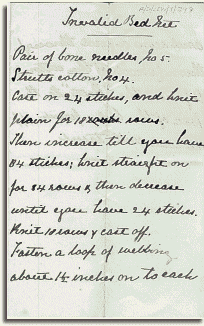 Invalid Bed Net
Pair of bone needles, No 5.
Strutts cotton, No 4.
Cast on 24 stiches, and knit
plain for 10 rows.
Then increase till you have
84 stiches; knit straight on
for 84 rows & then decrease
until you have 24 stiches.
Knit 10 rows & cast off.
Fasten a loop of webbing
about 14 inches on to each